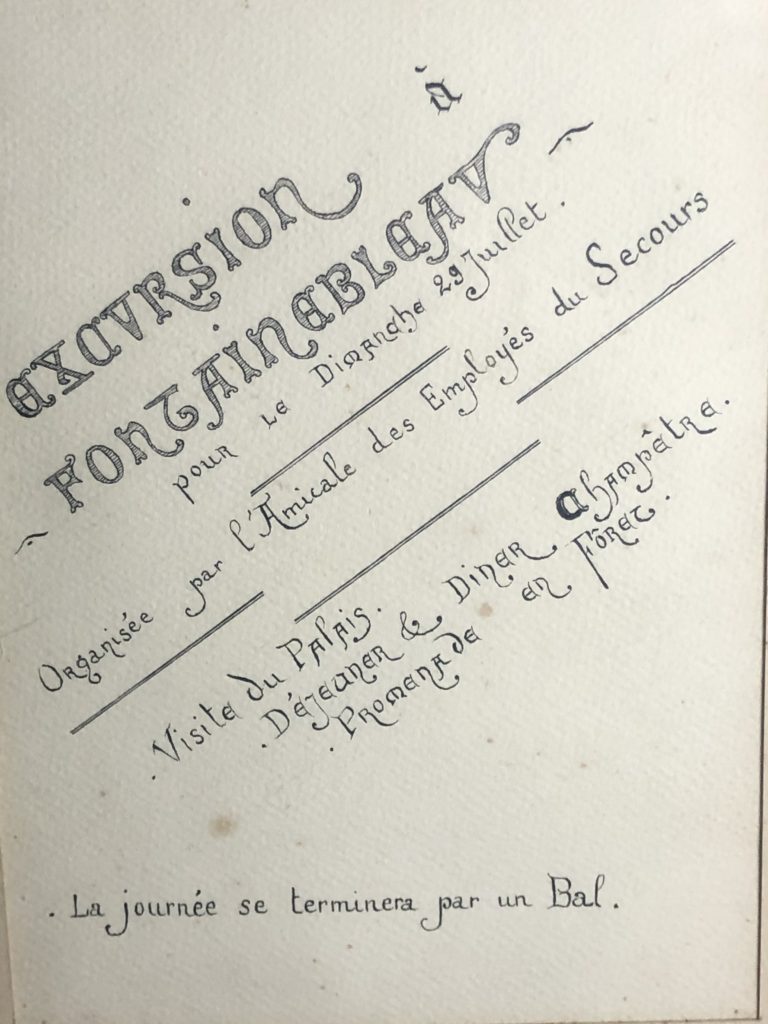 EXCURSION à
FONTAINEBLEAU
pour le Dimanche 29 Juillet.
Organisée par l'Amicale des Employés du Secours
. Visite du Palais.
. Déjeuner & Diner Champêtre.
. Promenade en Fôret.
. La journée se terminera par un Bal.